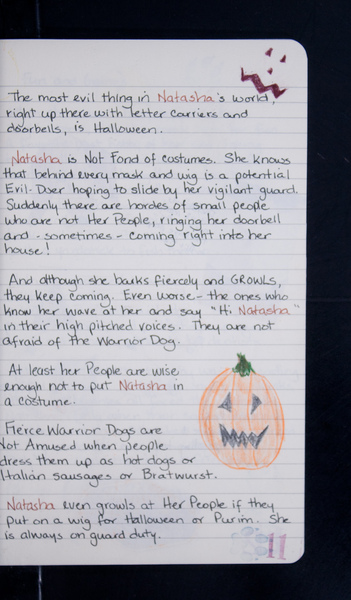 The most evil thing in Natasha's world,
right up there with letter carriers and
doorbells, is Halloween.
Natasha is Not Fond of costumes. She knows
that behind every mask and wig is a potential
Evil-Doer hoping to slide by her vigilant guard.
Suddenly there are hordes of small people
who are not Her People, ringing her doorbell
and - sometimes - coming right into her
house!
And although she barks fiercely and GROWLS,
they keep coming. Even worse - the ones who
know her wave at her and say "Hi Natasha"
in their high pitched voices. They are not
afraid of the Warrior Dog.
At least her People are wise
enough not to put Natasha in
a costume.
Fierce Warrior Dogs are
Not Amused when people
dress them up as hot dogs or
Italian sausages or Bratwurst.
Natasha even growls at Her People if they
put on a wig for Halloween or Purim. She
is always on guard duty.
11